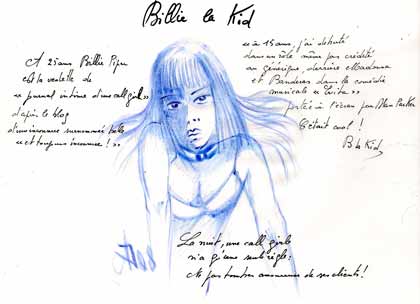 Billie la Kid
A 25 ans Billie Piper
est la vedette de
« journal intime d'une call girl »
d'après le blog
d'une inconnue surnommée belle
« et toujours inconnue ! »
« à 15 ans, j'ai débuté
dans un rôle même pas crédité
au générique derrière Madonna
et Banderas dans la comédie
musicale « Evita »
portée à l'écran par Alan Parker
C'était cool !
B la Kid
La nuit, une call girl
n'a qu'une seule règle :
ne pas tomber amoureuse de ses clients !